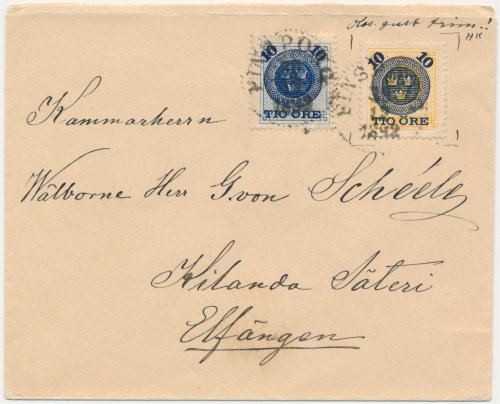 Obs. gult frim.!
HK
10 10
TIO ÖRE
10 10
TIO ÖRE
1892
Kammarherrn
Wälborne Herr G. von Schéele
Kilanda Säteri
Elfängen